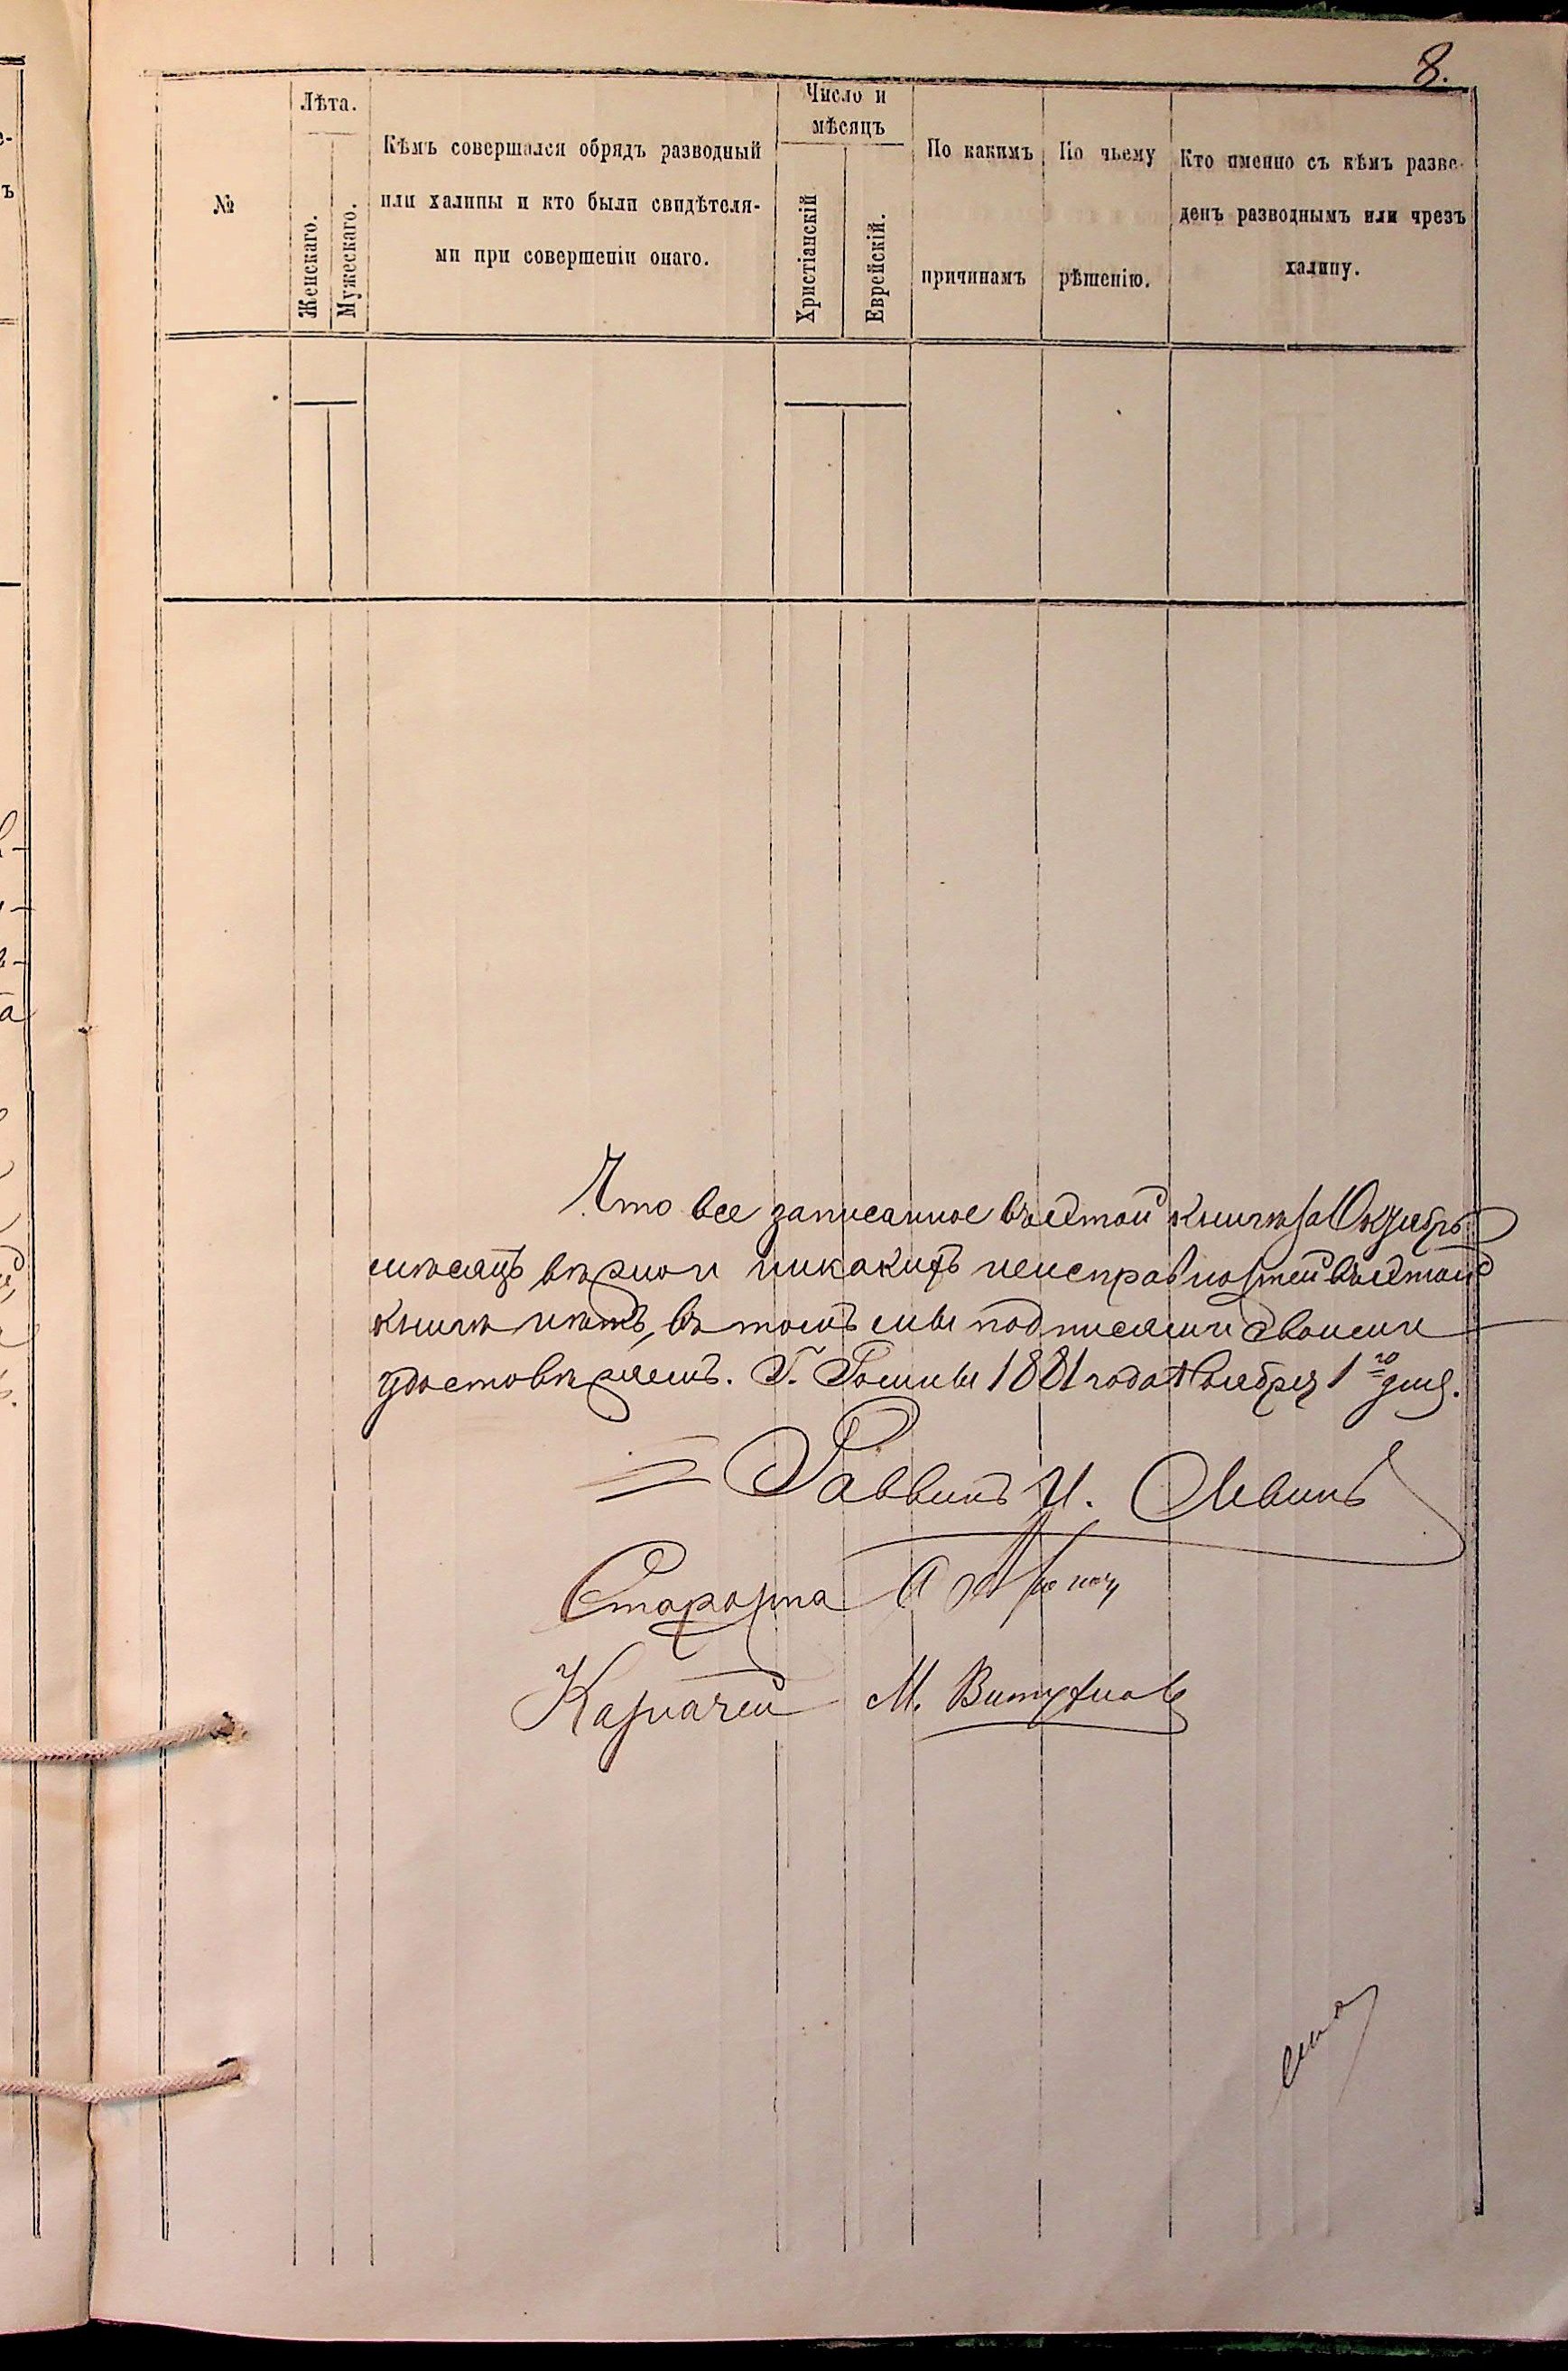 8.
№
Лѣта.
Женскаго.
Мужескаго.
Кѣмъ совершался обрядъ разводный
или халицы и кто были свидѣтеля-
ми при совершеніи онаго.
Число и
мѣсяцъ
Христіанскій
Еврейскій.
По какимъ
причинамъ
По чьему
рѣшенію.
Кто именно съ кѣмъ разве-
денъ разводнымъ или чрезъ
халицу.
Что все записанное въ етой книгѣ за Октябрь
мѣсяцъ вѣрно и никакихъ неисправностей въ етой
книгѣ нѣтъ, въ томъ мы подписями своими
удостовѣряемъ. Г. Ромны 1881 года Ноября 1го дня.
Раввинъ И. Левинъ
Староста
Казначей М.